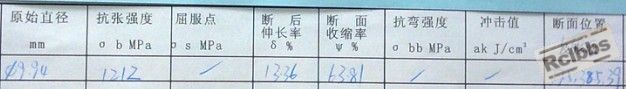 原始直径 抗张强度 屈服点 断后 断面 抗弯强度 冲击值 断面位置
伸长率 收缩率
mm σ b MPa σ s MPa δ % ψ % σ bb MPa ak J/cm²
Rclbbs
φ9.94 1212 / 13.36 63.81 / /